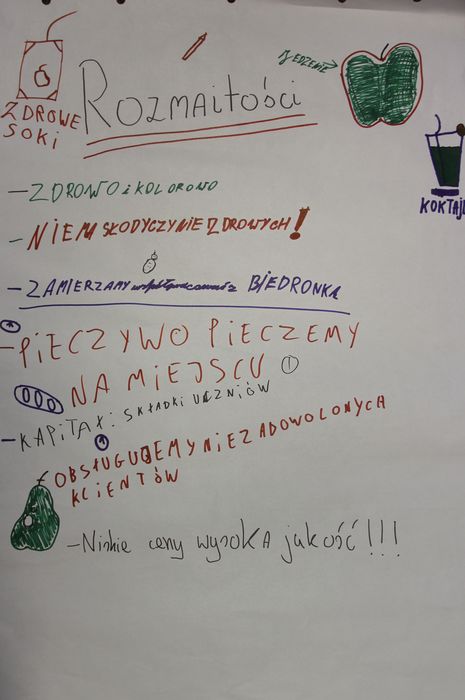 JEDZENIE
ZDROWE
SOKI
ROZMAITOŚCI
KOKTAJL
- ZDROWO i KOLOROWO
- NIEM SŁODYCZY NIEZDROWYCH!
- ZAMIERZAMY współpracować z BIEDRONKĄ
- PIECZYWO PIECZEMY
NA MIEJSCU
- KAPITAŁ: SKŁADKI UCZNIÓW
OBSŁUGUJEMY NIEZADOWOLONYCH
KLIENTÓW
- Niskie ceny wysoka jakość!!!